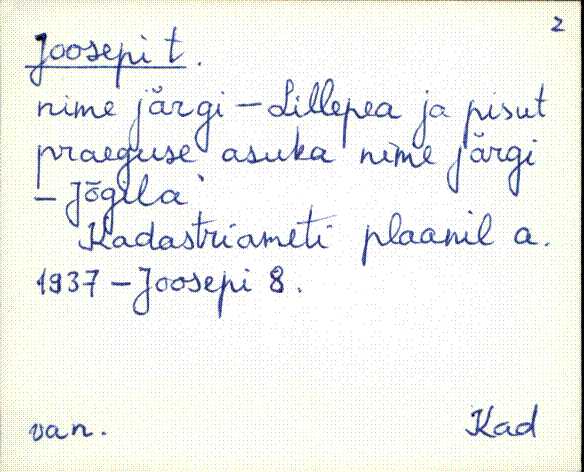 2
Joosepi t.
nime järgi – Lillepea ja pisut
praeguse asuka nime järgi
– Jõgila.
Kadastriameti plaanil a.
1937 – Joosepi 8.
van. Kad